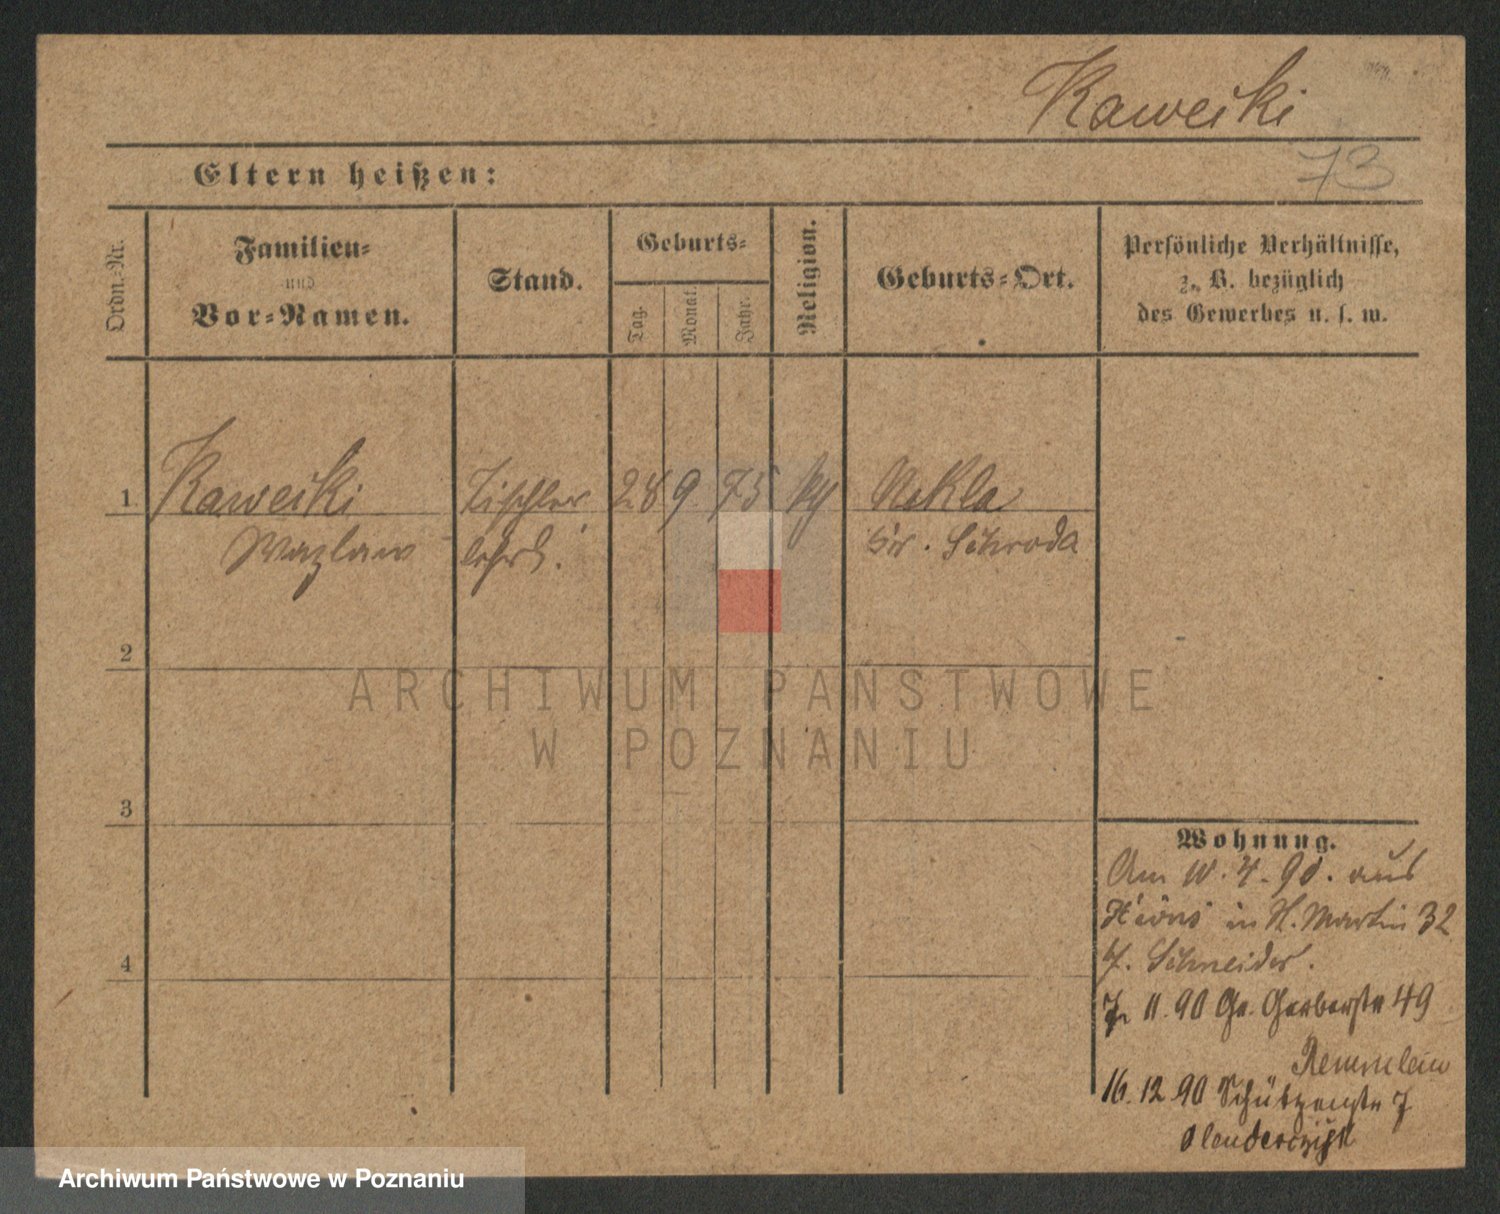 Kaweski
73
Eltern heißen:
Ordn.-Nr.
Familien-
und
Vor-Namen.
Stand.
Geburts-
Tag.
Monat.
Jahr.
Religion.
Geburts-Ort.
Persönliche Verhältnisse,
z. B. bezüglich
des Gewerbes u. s. w.
1 Kaweski Tischler 28 9. 75 Nekla
Wazlaw lehrl. Schroda
2
3
4
Wohnung.
Am 4. 90. aus
in St. Martin 32
Schneider.
11. 90 Gr. Gerberstr 49
16. 12 90 Schützenstr 7
ARCHIWUM PAŃSTWOWE
W POZNANIU
Archiwum Państwowe w Poznaniu